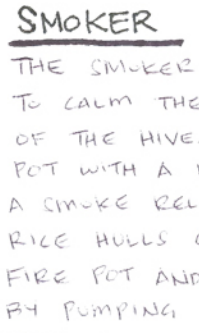 SMOKER
THE SMOKER
TO CALM THE
OF THE HIVE.
POT WITH A
A SMOKE REL
RICE HULLS
FIRE POT AND
BY PUMPING